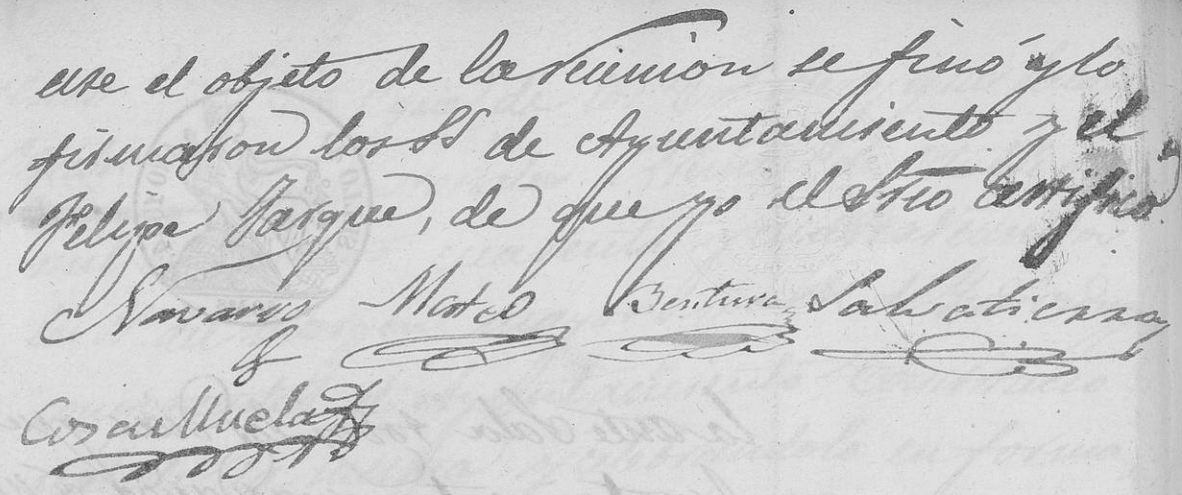 ese el objeto de la reunion se finó y lo
firmaron los SS de Ayuntamiento y el
Felipe Jarque, de que yo el Srio certifico
Navarro Mateo Bentura Salvatierra